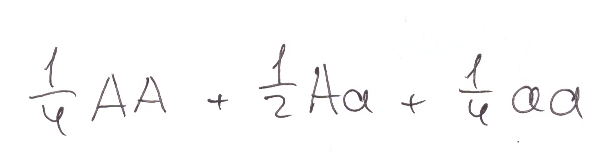 1/4 AA + 1/2 Aa + 1/4 aa